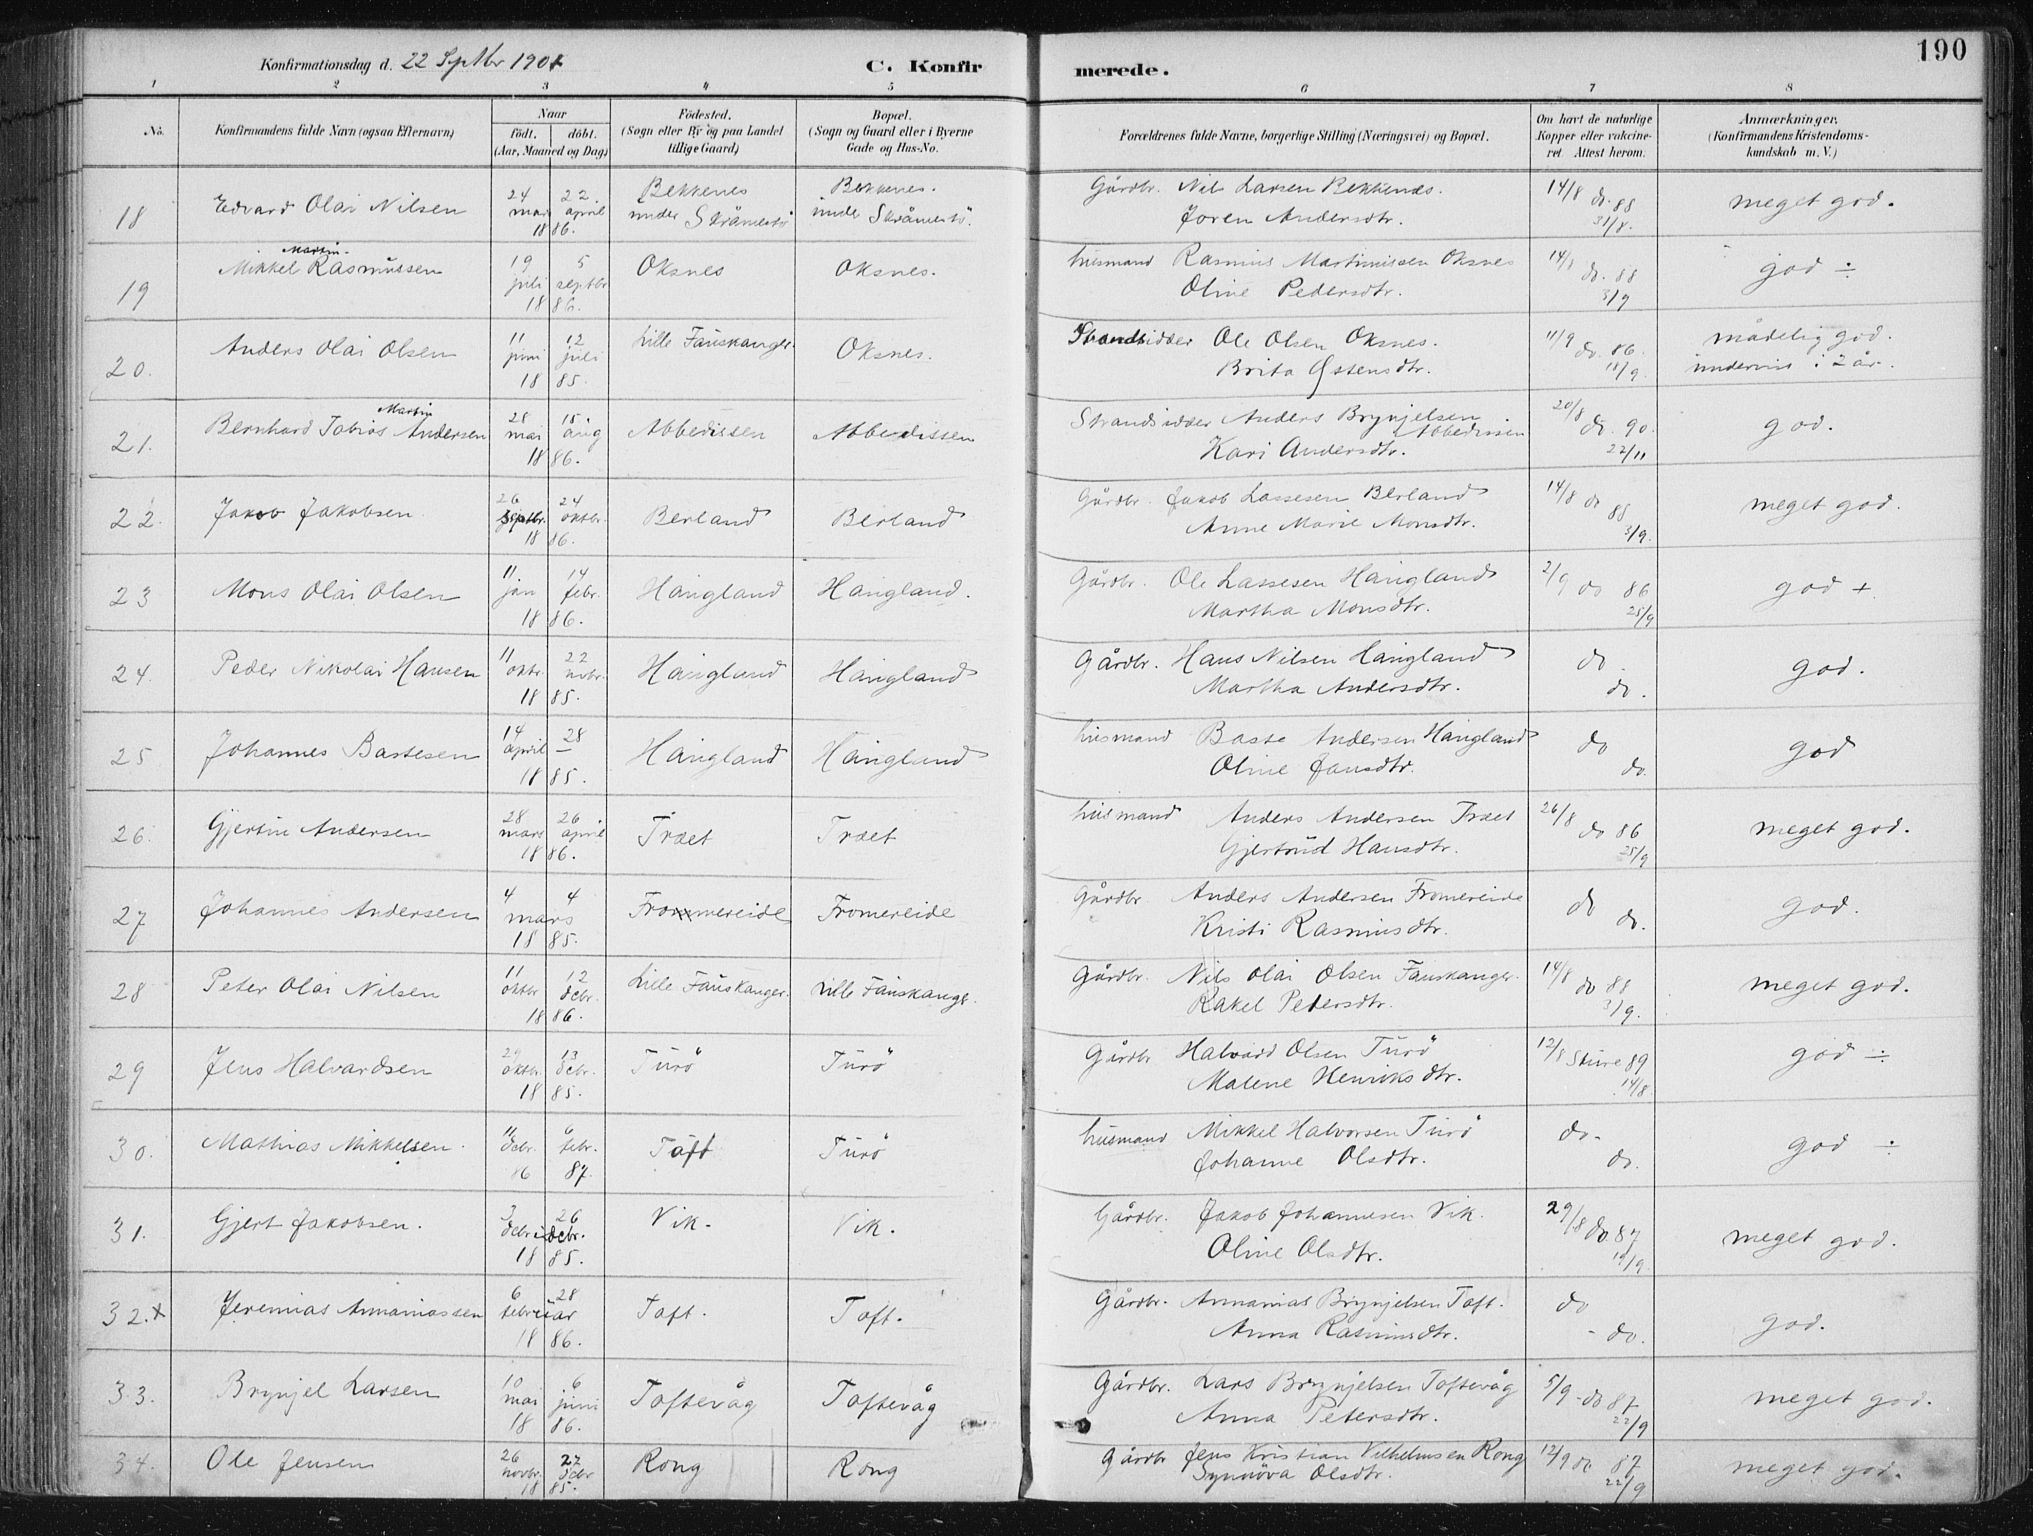 190
Konfirmationsdag d. 22 Septbr 1901
C. Konfirmerede.
1 2 3 4 5 6 7 8
No. Konfirmandens fulde Navn (ogsaa Efternavn) Naar födt. döbt. (Aar, Maaned og Dag) Födested. (Sogn eller By og paa Landet tillige Gaard) Bopæl. (Sogn og Gaard eller i Byerne Gade og Hus-No. Forældrenes fulde Navne, borgerlige Stilling (Næringsvei) og Bopæl. Om havt de naturlige Kopper eller vakcineret. Attest herom. Anmærkninger. (Konfirmandens Kristendomskundskab m. V.)
18 Edvard Olai Nilsen 24 mars 22. april 1886. Bekkenes under Skråmestö Bekkenes. under Skråmestö. Gårdbr. Nils Larsen Bekkenes. Joren Andersdtr. 14/8 do. 88 31/8. meget god.
19 Mikkel Martin Rasmussen 19 juli 5 septbr 1886. Oksnes Oksnes. husmand Rasmus Martinussen Oksnes Oline Pedersdtr. 14/8 do. 88 3/9 god ÷
20. Anders Olai Olsen 11 juni 12 juli 1885. Lille Fauskanger. Oksnes. Strandsidder Ole Olsen Oksnes. Brita Østensdtr. 11/9 do. 86. 18/9. mådelig god. undervis i 2 år.
21. Bernhard Tobias Martin Andersen 28 mai 15. aug 1886. Abbedissen Abbedissen Strandsidder Anders Brynjelsen Abbedissen Kari Andersdtr. 20/8 do. 90. 22/11 god.
22. Jakob Jakobsen 26 septbr. 24 oktbr. 1886. Berland Berland Gårdbr. Jakob Lassesen Berland Anne Marie Monsdtr. 14/8 do 88 3/9. meget god.
23 Mons Olai Olsen 11 jan 14 febr. 1886. Haugland Haugland. Gårdbr. Ole Lassesen Haugland Martha Monsdtr. 2/9 do 86 25/9 god +
24. Peder Nikolai Hansen 11 oktr. 22 novbr. 1885. Haugland Haugland Gårdbr. Hans Nilsen Haugland Martha Andersdtr. do. do. god.
25 Johannes Bastesen 14 april 28 – 1885. Haugland Haugland husmand Baste Andersen Haugland Oline Jansdtr. do do. god
26. Gjertin Andersen 28 mars 26 april 1886. Træet Træet husmand Anders Andersen Træet Gjertrud Hansdtr. 26/8 do 86 25/9 meget god.
27 Johannes Andersen 4 4 mars 1885. Frommereide Fromereide Gårdbr. Anders Andersen Fromereide Kristi Rasmusdtr. do do. god.
28 Peter Olai Nilsen 11 oktbr 12 debr. 1886. Lille Fauskanger. Lille Fauskangr. Gårdbr. Nils Olai Olsen Fauskanger. Rakel Petersdtr. 14/8 do 88 3/9. meget god.
29 Jens Halvardsen 29 oktbr. 13 debr. 1885. Turö Turö Gårdbr Halvard Olsen Turö Malene Henriksdtr. 12/8 Sture 89 14/8. god ÷
30. Mathias Mikkelsen. 11 debr. 86 6 febr. 87. Toft Turö husmand Mikkel Halvorsen Turö Johanne Olsdtr. do. do. god ÷
31. Gjert Jakobsen. 3 debr. 26 debr. 1885. Vik. Vik. Gårdbr. Jakob Johannesen Vik. Oline Olsdtr. 29/8 do. 87 19/9. meget god.
32.+ Jeremias Annaniassen 6 28 februar 1886. Toft. Toft. Gårdbr. Annanias Brynjelsen Toft. Anna Rasmusdtr. do - do. god.
33. Brynjel Larsen 10 mai 6 juni 1886. Toftevåg Toftevåg Gårdbr. Lars Brynjelsen Toftevåg Anna Petersdtr. 5/9 - do 87 22/9 meget god.
34. Ole Jensen 26 novbr. 27 debr 1885. Rong Rong Gårdbr Jens Kristian Vilhelmsen Rong Synnöva Olsdtr. 12/9 do 87 22/9 meget god.